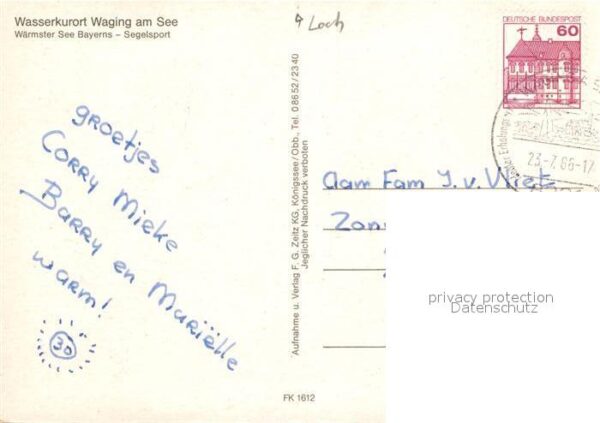 Wasserkurort Waging am See
Wärmster See Bayerns – Segelsport
Loch
DEUTSCHE BUNDESPOST
60
23.-7.86-17
groetjes
CORRY Mieke
Barry en Mariëlle
warm!
30
Aufnahme u. Verlag F. G. Zeitz KG, Königssee/Obb., Tel. 08652/2340
Jeglicher Nachdruck verboten
Aam Fam J. v. Vliet
Zon
privacy protection
Datenschutz
FK 1612